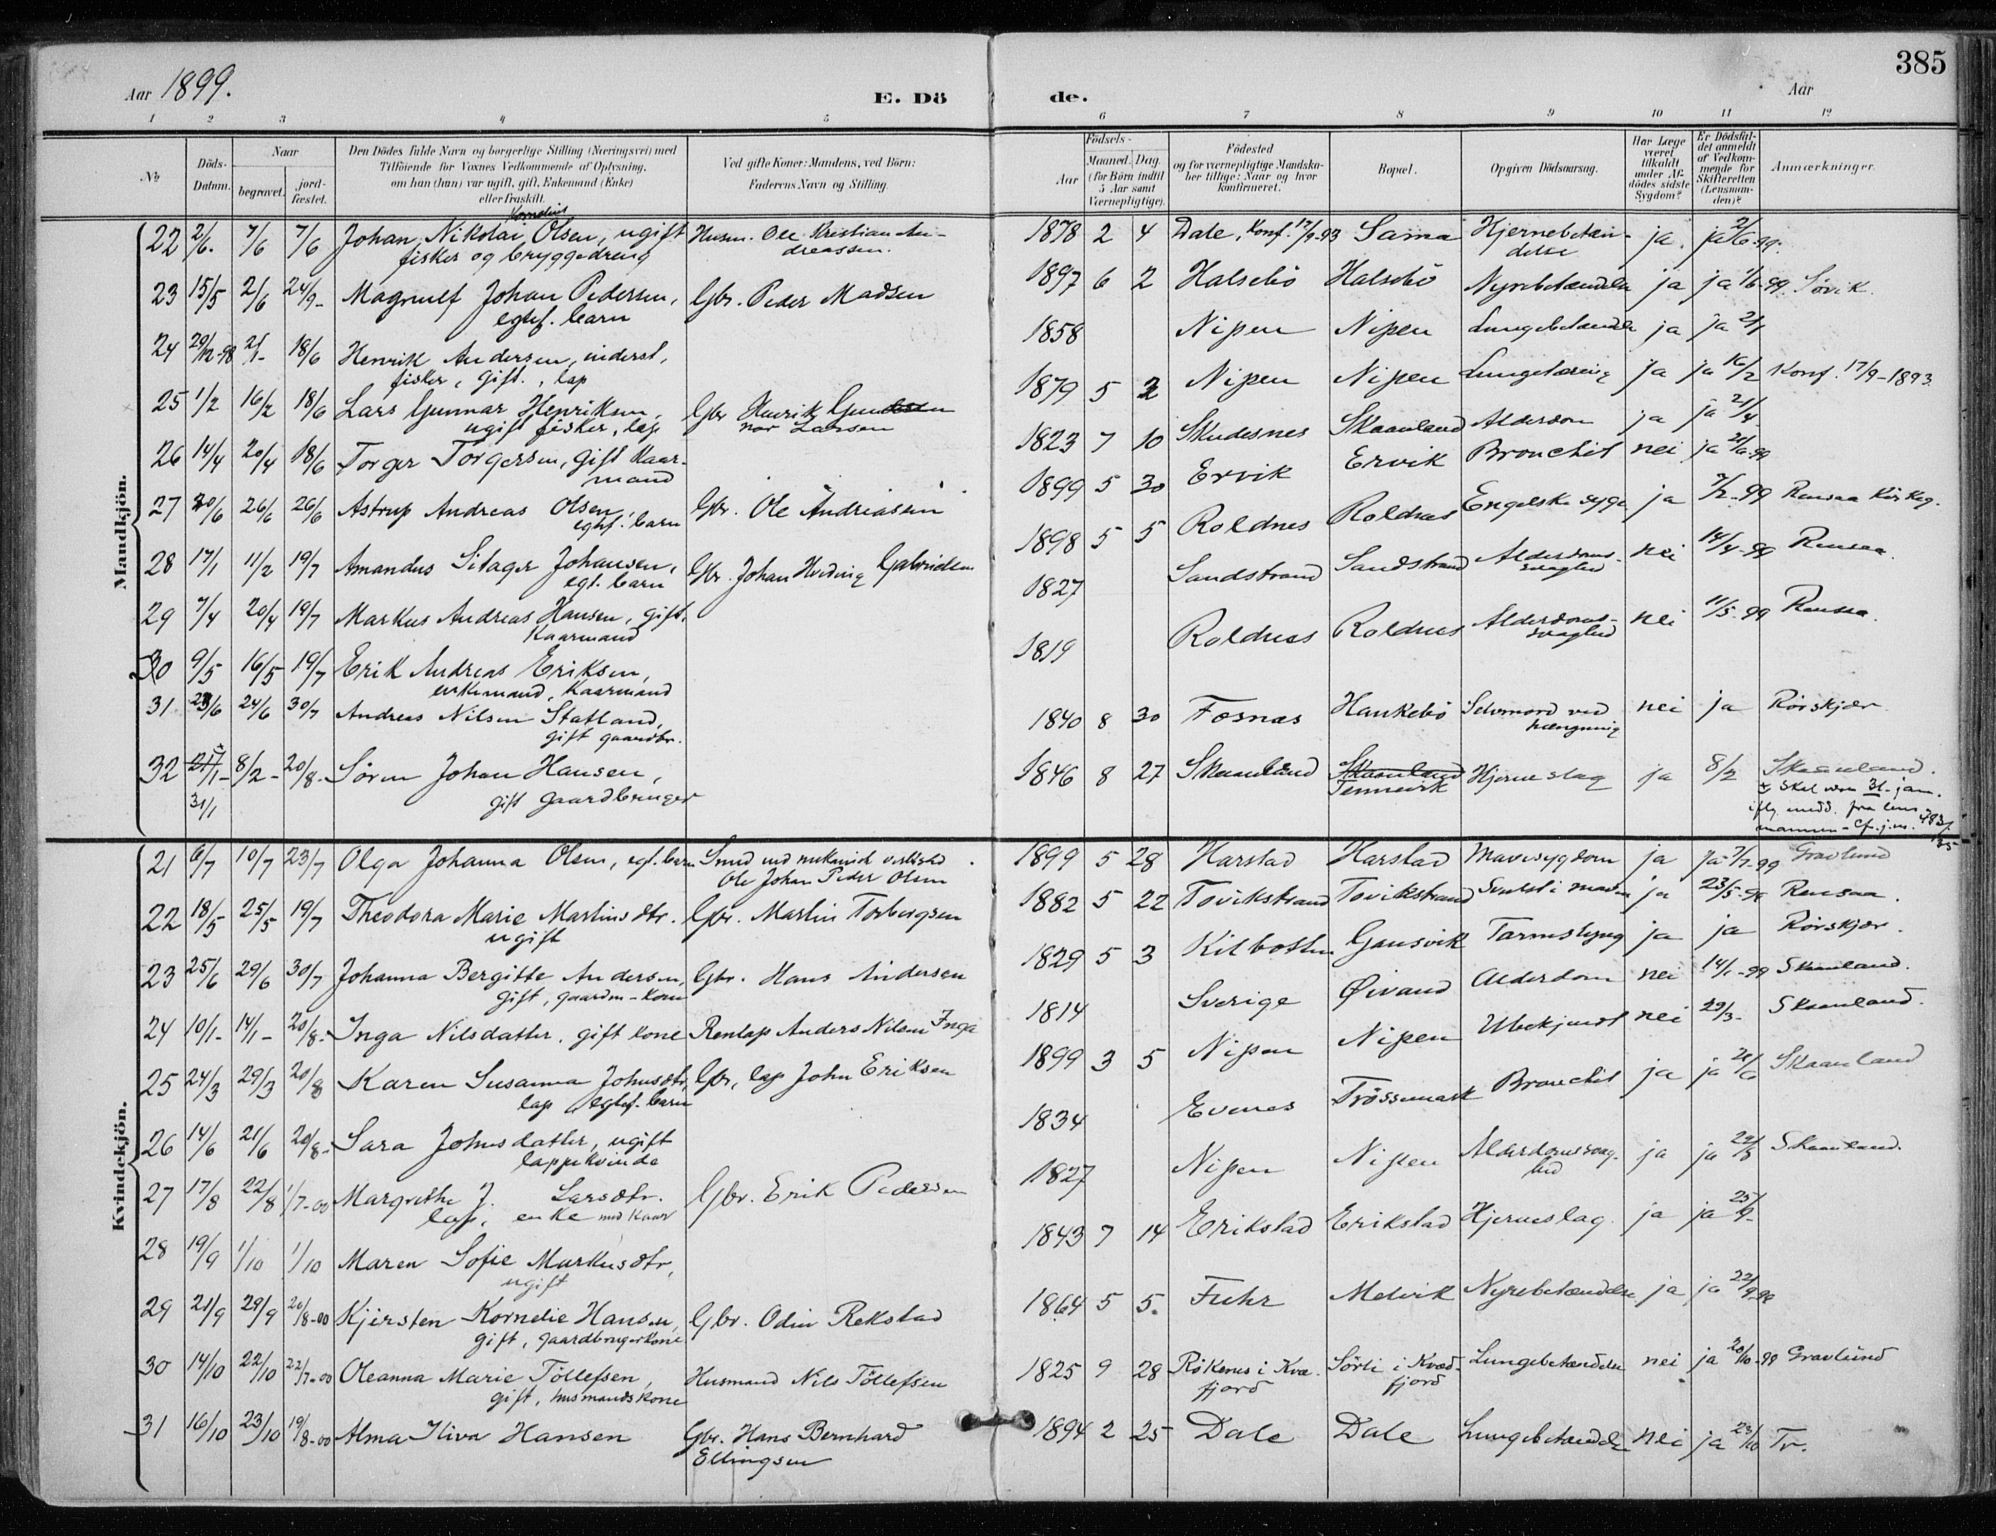 385
Aar 1899.
E. Dö
de.
Aar
1 2 3 4 5 6 7 8 9 10 11 12
No
Döds-Datum.
Naar
begravet.
jord-fæstet.
Den Dödes fulde Navn og borgerlige Stilling (Næringsvei) med
Tilföiende for Voxnes Vedkommende af Oplysning,
om han (hun) var ugift, gift, Enkemand (Enke)
eller fraskilt.
Ved gifte Koner: Mandens, ved Börn:
Faderens Navn og Stilling.
Födsels-
Aar
Maaned. Dag.
(for Börn indtil
5 Aar samt
Værnepligtige).
Födested
og for værnepligtige Mandska-
ber tillige: Naar og hvor
konfirmeret.
Bopæl.
Opgiven Dödsaarsag.
Har Læge
været
tilkaldt
under Af-
dödes sidste
Sygdom?
Er Dödsfal-
det anmeldt
af Vedkom-
mende for
Skifteretten
(Lensman-
den)?
Anmærkninger.
Mandkjön.
Kornelius
22 2/6. 7/6 7/6 Johan Nikolai Olsen, ugift Husm. Ole Kristian An- 1878 2 4 Dale, Konf. 17/9-93 Sama Hjernebetæn- ja. ja 2/6-99.
fisker og bryggedreng dreassen. delse
23 15/5 2/6 24/9- Magnulf Johan Pedersen, Gbr. Peder Madsen 1897 6 2 Halsebö Halsebö Nyrebetændelse ja ja 1/6-99. Sövik.
egtef. barn
24 29/12-98 2/1- 18/6 Henrik Andersen, inderst, 1858 Nipen Nipen Lungebetændelse ja ja 2/1
fisker, gift., lap
25 1/2 16/2 18/6 Lars Gunnar Henriksen, Gbr Henrik Gun 1879 5 2 Nipen Nipen Lungetæring ja ja 16/2 Konf. 17/9-1893.
ugift fisker, lap nar Larsen
26 14/4 20/4 18/6 Torger Torgersen, gift Kaar- 1823 7 10 Skudesnes Skaanland Alderdom ja ja 21/4
mand
27 20/6 26/6 26/6 Astrup Andreas Olsen Gbr. Ole Andreassen 1899 5 30 Ervik Ervik Bronchit nei ja 21/6-99
egtef. barn
28 17/1 11/2 19/7 Amandus Sitager Johansen, Gbr. Johan Hveding Gabrielsen 1898 5 5 Roldnes Roldnes Engelske syge ja 7/2-99 Rensaa Kirkeg.
egt. barn
29 7/4 20/4 19/7 Markus Andreas Hansen, gift, 1827 Sandstrand Sandstrand Alderdoms- nei 14/4-99 Rensaa.
Kaarmand svaghed
30 9/5 16/5 19/7 Erik Andreas Eriksen, 1819 Roldnes Roldnes Alderdoms- nei 11/5-99 Rensaa.
enkemand, Kaarmand svaghed
31 23/6 24/6 30/7 Andreas Nilsen Statland, 1840 8 30 Fosnæs Haukebö Selvmord ved nei ja Rörskjær
gift gaardbr. hængning
32 21/1- 8/2- 20/8- Sören Johan Hansen, 1846 8 27 Skaanland Skaanland Hjerneslag ja 8/2 Skaanland.
31/1 gift gaardbruger Tennevik
x Skal være 31. jan.
iflg. medd. fra lens
mannen - Cf. j.nr. 483/35
Kvindekjön.
21 6/7 10/7 23/7 Olga Johanna Olsen, egt. barn Smed ved mekanisk verksted 1899 5 28 Harstad Harstad Mavesygdom ja ja 7/7-99 Gravlund
Ole Johan Peder Olsen
22 18/5 25/5 19/7 Theodora Marie Martinsdtr. Gbr. Martin Torbergsen 1882 5 22 Tovikstrand Tovikstrand Svulst i maven ja 23/5-99 Rensaa.
ugift
23 25/6 29/6 30/7 Johanna Bergitte Andersen, Gbr. Hans Andersen 1829 5 3 Kilbotten Gausvik Tarmslyng ja ja Rörskjær.
gift, gaardm-kone
24 10/1- 14/1- 20/8- Inga Nilsdatter, gift kone Renlap Anders Nilsen Inga 1814 Sverige Öivand Alderdom nei 14/1-99 Skaanland.
25 24/3 29/3 20/8 Karen Susanna Johnsdtr, Gbr, lap John Eriksen 1899 3 5 Nipen Nipen Ubekjendt nei 29/3- Skaanland.
lap egtef. barn
26 14/6 21/6 20/8- Sara Johnsdatter, ugift 1834 Evenes Trössemark Bronchit ja ja 21/6 Skaanland
lappekvinde
27 17/8 22/8 1/7-00 Margrethe J. Larsdtr. Gbr. Erik Pedersen 1827 Nipen Nipen Alderdomssvag- ja ja 22/8 Skaanland.
lap, enke med Kaar hed
28 19/9 1/10 1/10 Maren Sofie Markusdtr, 1843 7 14 Erikstad Erikstad Hjerneslag. ja ja 25/9-
ugift
29 21/9 29/9 20/8-00 Kjersten Kornelie Hansen, Gbr. Odin Rekstad 1864 5 5. Fuhr Melvik Nyrebetændelse ja ja 22/9-99
gift, gaardbrugerkone
30 14/10 22/10 22/7-00 Oleanna Marie Töllefsen, Husmand Nils Töllefsen 1825 9 28 Rökenes i Kvæ- Sörli i Kvæd- Lungebetændelse nei ja 20/10-99 Gravlund
gift, husmandskone fjord fjord
31 16/10 23/10 19/8-00 Alma Iliva Hansen Gbr. Hans Bernhard 1894 2 25 Dale Dale Lungebetændelse nei ja 23/10 Tr.
Ellingsen